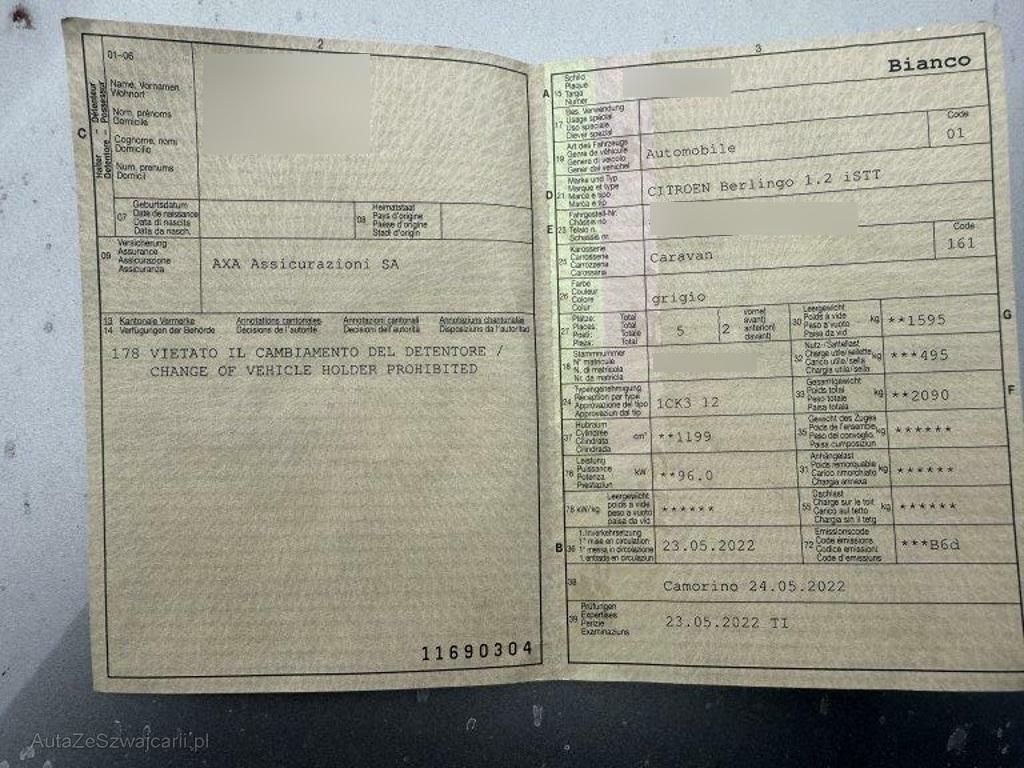 2
01-06
Name, Vornamen
Wohnort
Nom, prénoms
Domicile
Cognome, nomi
Domicilio
Num, prenums
Domicil
C
Halter – Détenteur
Detentore – Possessur
07
Geburtsdatum
Date de naissance
Data di nascita
Data da nasch.
08
Heimatstaat
Pays d'origine
Paese d'origine
Stadi d'origin
09
Versicherung
Assurance
Assicurazione
Assicuranza
AXA Assicurazioni SA
13
14
Kantonale Vermerke
Verfügungen der Behörde
Annotations cantonales
Décisions de l'autorité
Annotazioni cantonali
Decisioni dell'autorità
Annotaziuns chantunalas
Disposiziuns da l'autoritad
178 VIETATO IL CAMBIAMENTO DEL DETENTORE /
CHANGE OF VEHICLE HOLDER PROHIBITED
11690304
3
Bianco
A
15
Schild
Plaque
Targa
Numer
17
Bes. Verwendung
Usage spécial
Uso speciale
Diever spezial
19
Art des Fahrzeugs
Genre de véhicule
Genere di veicolo
Gener dal vehichel
Automobile
Code
01
D
21
Marke und Typ
Marque et type
Marca e tipo
Marca e tip
CITROEN Berlingo 1.2 iSTT
E
23
Fahrgestell-Nr.
Châssis no
Telaio n.
Schassis nr.
25
Karosserie
Carrosserie
Carrozzeria
Carossaria
Caravan
Code
161
26
Farbe
Couleur
Colore
Colur
grigio
27
Plätze: Total
Places: Total
Posti: Totale
Plazs: Total
5
2
vorne)
avant)
anteriori)
davant)
30
Leergewicht
Poids à vide
Peso a vuoto
Paisa da vid
kg
**1595
G
18
Stammnummer
N° matricule
N. di matricola
Nr. da matricla
32
Nutz-/Sattellast
Charge utile/sellette
Carico utile/sella
Chargia utila/sella
kg
***495
24
Typengenehmigung
Réception par type
Approvazione del tipo
Approvaziun dal tip
1CK3 12
33
Gesamtgewicht
Poids total
Peso totale
Paisa totala
kg
**2090
F
37
Hubraum
Cylindrée
Cilindrata
Cilindrada
cm³
**1199
35
Gewicht des Zuges
Poids de l'ensemble
Peso del convoglio
Paisa cumposiziun
kg
******
76
Leistung
Puissance
Potenza
Prestaziun
kW
**96.0
31
Anhängelast
Poids remorquable
Carico rimorchiato
Chargia annexa
kg
******
78 kW/kg
Leergewicht
poids à vide
peso a vuoto
paisa da vid
******
55
Dachlast
Charge sur le toit
Carico sul tetto
Chargia sin il tetg
kg
******
B
36
1. Inverkehrsetzung
1re mise en circulation
1a messa in circolazione
1. entrada en circulaziun
23.05.2022
72
Emissionscode
Code émissions
Codice emissioni
Code d'emissiuns
***B6d
38
Camorino 24.05.2022
39
Prüfungen
Expertises
Perizie
Examinaziuns
23.05.2022 TI
AutaZeSzwajcarii.pl